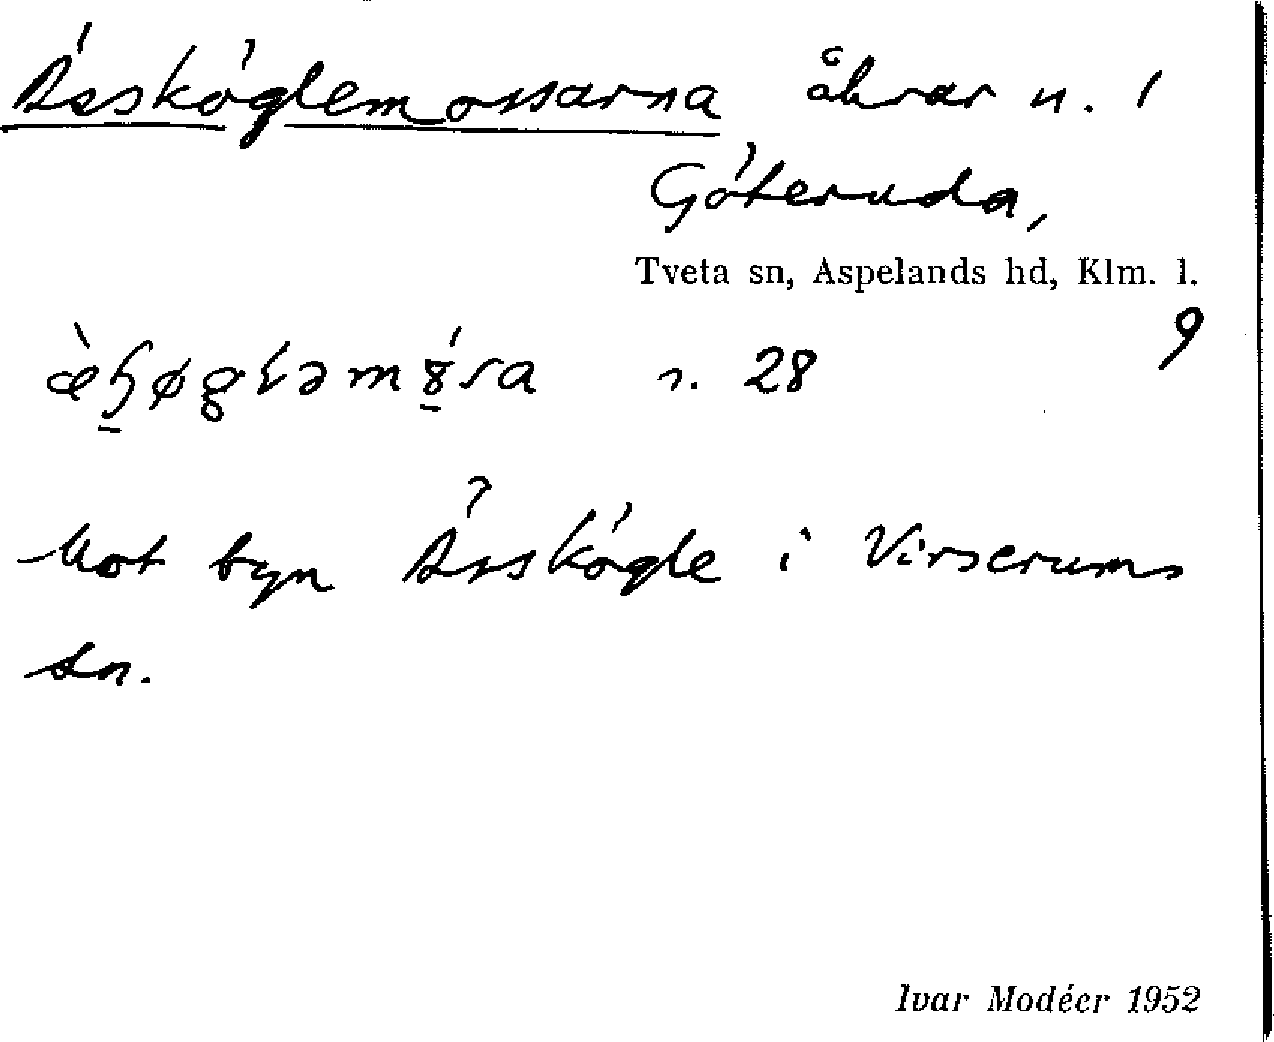 Ässköglemossarna åkrar n. 1
Göteruda,
Tveta sn, Aspelands hd, Klm. l.
9
n. 28
Mot byn Ässkögle i Virserums
sn.
Ivar Modéer 1952